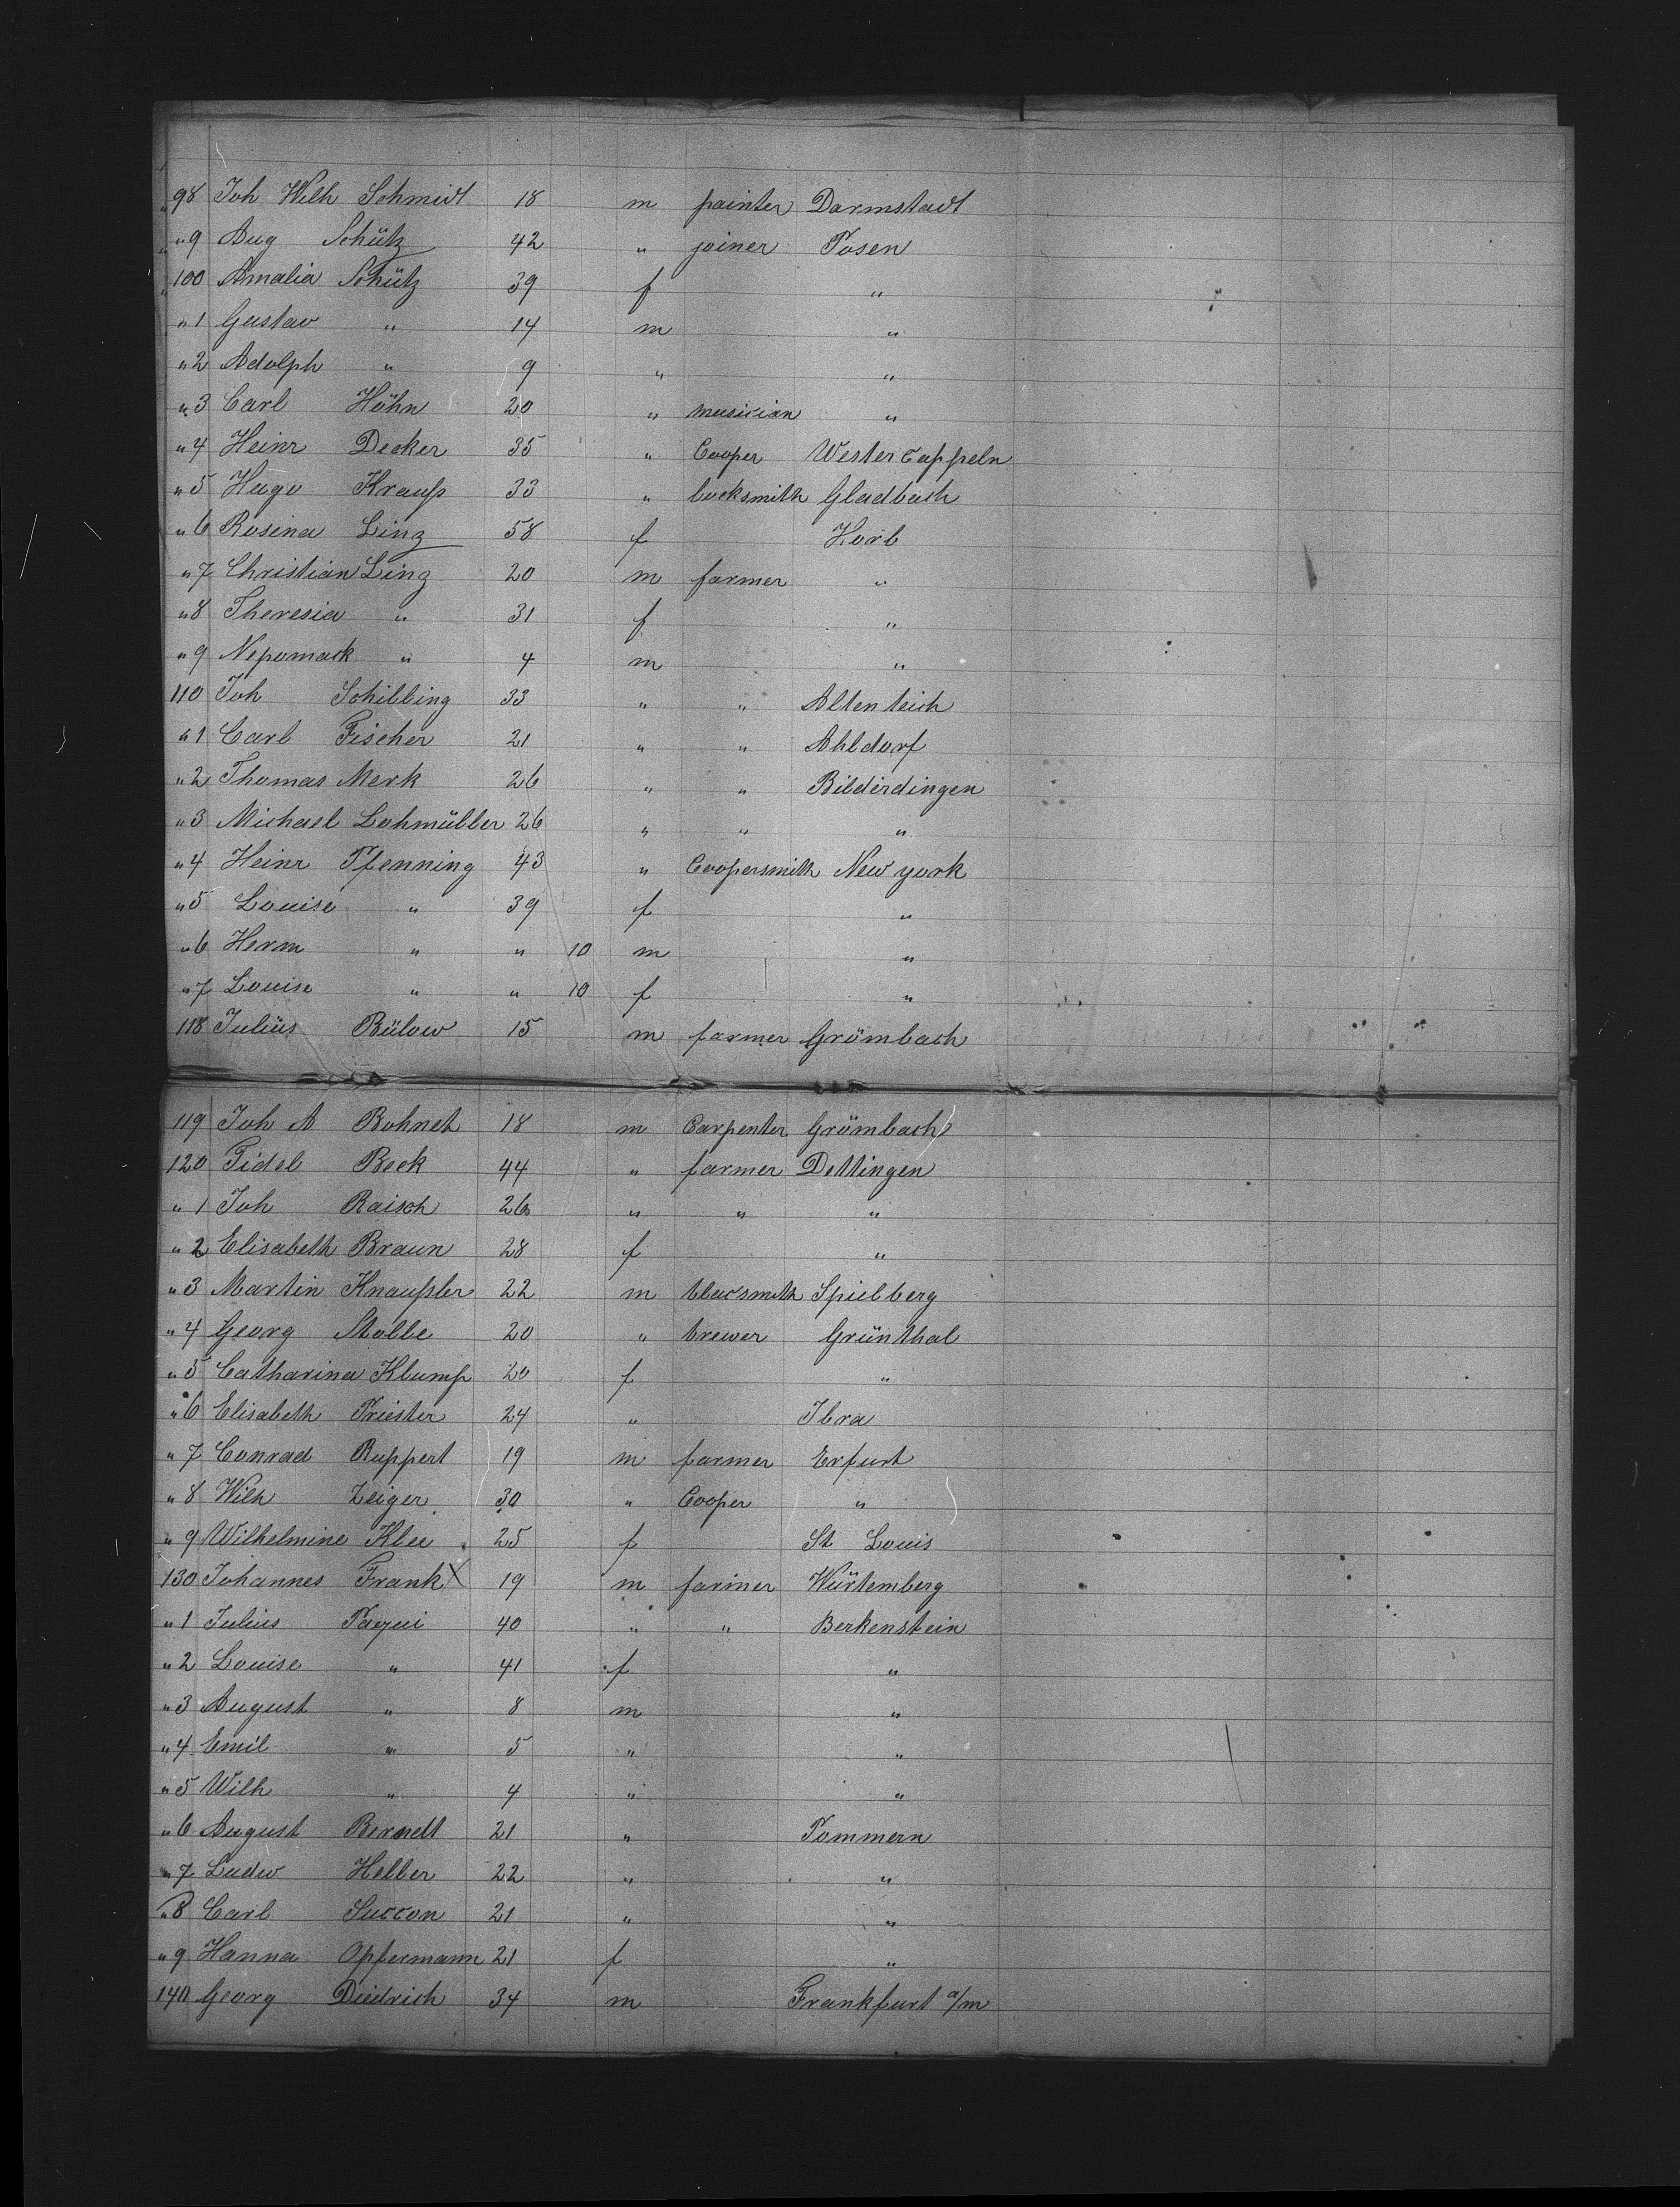 " 98 Joh Wilh Schmidt 18 m painter Darmstadt
" " 9 Aug Schütz 42 " joiner Posen
" 100 Amalia Schütz 39 f "
" 1 Gustav " 14 m "
" 2 Adolph " 9 " "
" 3 Carl Höhn 20 " musician "
" 4 Heinr Decker 35 " Cooper Wester Cappeln
" 5 Hugo Krauß 33 " locksmith Gladbach
" 6 Rosina Ling 58 f Horb
" 7 Christian Ling 20 m farmer "
" 8 Theresia " 31 f "
" 9 Nepomuck " 4 m "
110 Joh Schilling 33 " " Altenteich
" 1 Carl Fischer 21 " " Ahldorf
" 2 Thomas Merk 26 " " Bilderdingen
" 3 Michael Lohmüller 26 " " "
" 4 Heinr Pfenning 43 " Coopersmith New york
" 5 Louise " 39 f "
" 6 Herm " " 10 m "
" 7 Louise " " 10 f "
118 Julius Bülow 15 m farmer Grömbach
119 Joh A Bohnet 18 m Carpenter Grömbach
120 Fidel Beck 44 " farmer Dettingen
" 1 Joh Raisch 26 " " "
" 2 Elisabeth Braun 28 f "
" 3 Martin Knaußler 22 m blacsmith Spielberg
" 4 Georg Stolle 20 " brewer Grünthal
" 5 Catharina Klump 20 f "
" 6 Elisabeth Priester 24 " Ibra
" 7 Conrad Ruppert 19 m farmer Erfurt
" 8 Wilh Zeiger 30 " Cooper "
" 9 Wilhelmine Klee 25 f St Louis
130 Johannes Frank X 19 m farmer Würtemberg
" 1 Julius Paqui 40 " " Berkenstein
" 2 Louise " 41 f "
" 3 August " 8 m "
" 4 Emil " 5 " "
" 5 Wilh " 4 " "
" 6 August Berndt 21 " Pommern
" 7 Ludw Heller 22 " "
" 8 Carl Succon 21 " "
" 9 Hanna Opfermann 21 f "
140 Georg Diedrich 34 m Frankfurt a/m